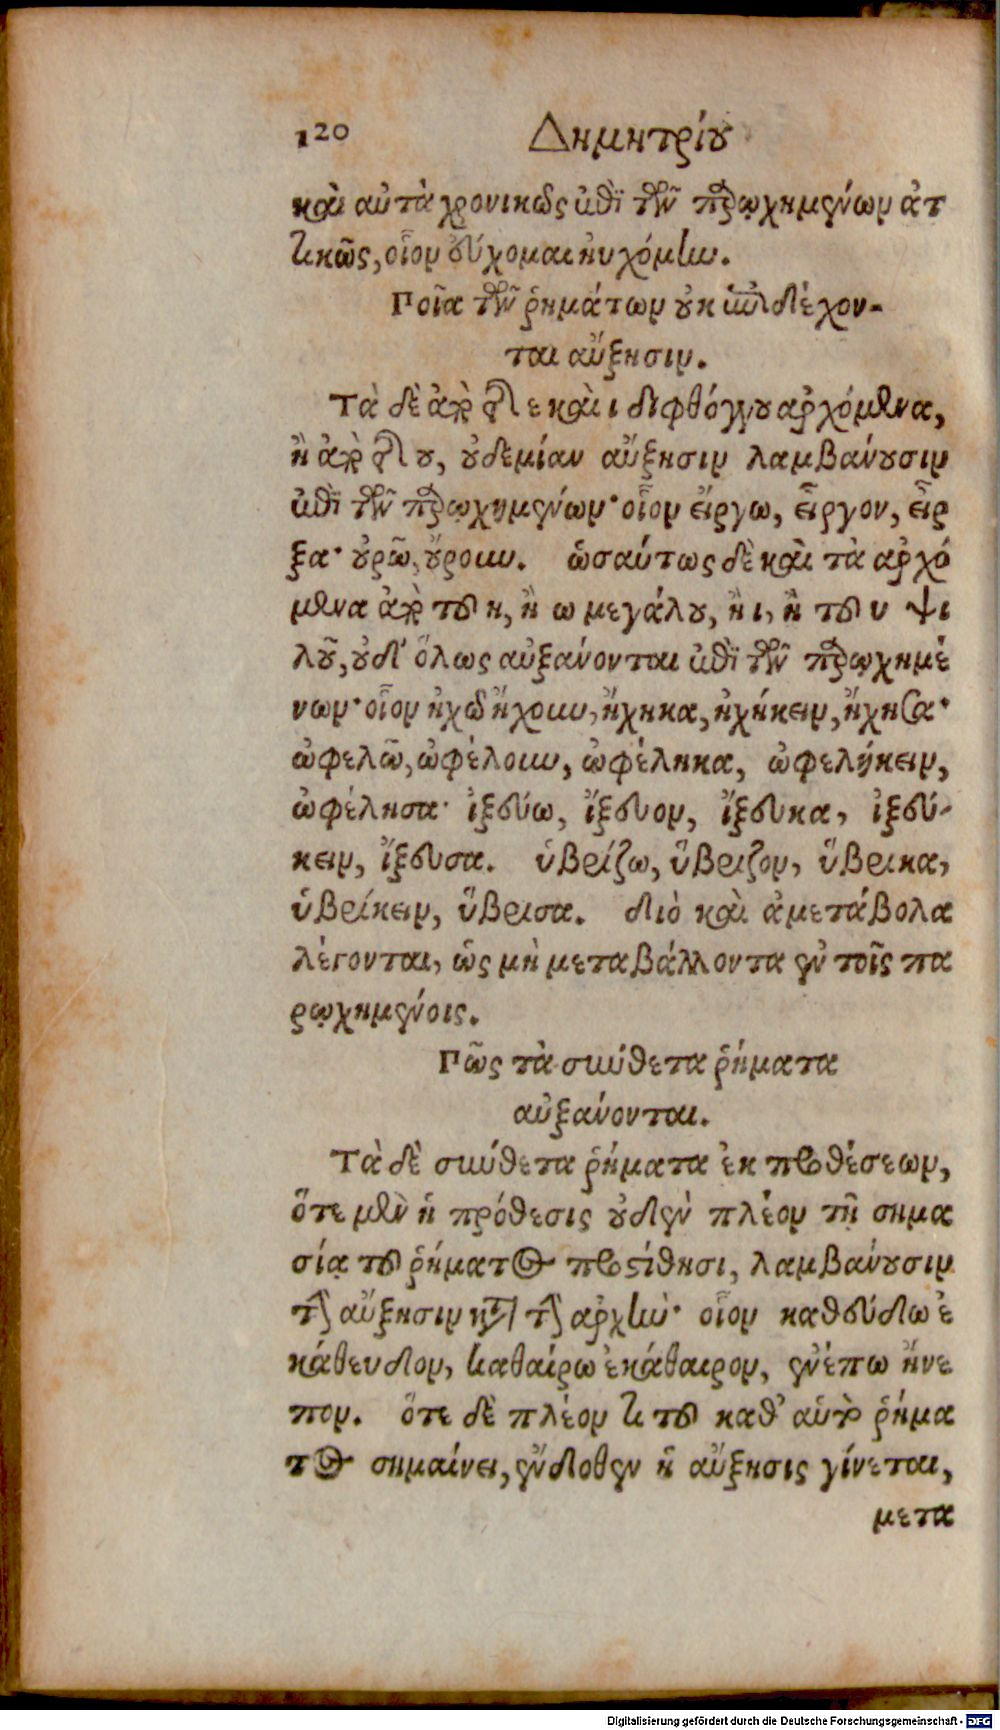 120 Δημητρίου
καὶ αὐτὰ χρονικῶς ἐπὶ τῶν παρῳχημένων ἀτ
τικῶς, οἷον εὔχομαι ηὐχόμην.
Ποῖα τῶν ῥημάτων οὐκ ἐπιδέχον-
ται αὔξησιν.
Τὰ δὲ ἀπὸ τῆς ει καὶ ι διφθόγγου ἀρχόμενα,
ἢ ἀπὸ τῆς ου, οὐδεμίαν αὔξησιν λαμβάνουσιν
ἐπὶ τῶν παρῳχημένων· οἷον εἴργω, εἶργον, εἶρ
ξα· οὐρῶ, οὔρουν. ὡσαύτως δὲ καὶ τὰ ἀρχό
μενα ἀπὸ τοῦ η, ἢ ω μεγάλου, ἢ ι, ἢ τοῦ υ ψι
λοῦ, οὐδ' ὅλως αὐξάνονται ἐπὶ τῶν παρῳχημέ
νων· οἷον ἠχῶ ἤχουν, ἤχηκα, ἠχήκειν, ἤχησα·
ὠφελῶ, ὠφέλουν, ὠφέληκα, ὠφελήκειν,
ὠφέλησα· ἰξεύω, ἴξευον, ἴξευκα, ἰξεύ-
κειν, ἴξευσα. ὑβρίζω, ὕβριζον, ὕβρικα,
ὑβρίκειν, ὕβρισα. διὸ καὶ ἀμετάβολα
λέγονται, ὡς μὴ μεταβάλλοντα ἐν τοῖς πα
ρῳχημένοις.
Πῶς τὰ σύνθετα ῥήματα
αὐξάνονται.
Τὰ δὲ σύνθετα ῥήματα ἐκ προθέσεων,
ὅτε μὲν ἡ πρόθεσις οὐδὲν πλέον τῇ σημα
σίᾳ τοῦ ῥήματος προστίθησι, λαμβάνουσιν
τὴν αὔξησιν κατὰ τὴν ἀρχὴν· οἷον καθεύδω ἐ
κάθευδον, καθαίρω ἐκάθαιρον, ἐνέπω ἤνε
πον. ὅτε δὲ πλέον τι τοῦ καθ' αὑτὸ ῥήμα
τος σημαίνει, ἔνδοθεν ἡ αὔξησις γίνεται,
μετα
Digitalisierung gefördert durch die Deutsche Forschungsgemeinschaft - DFG